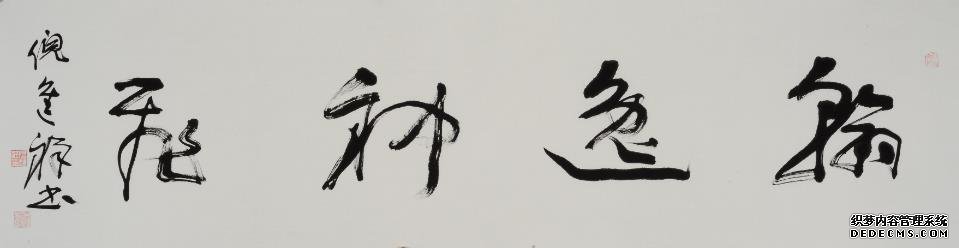 翰逸神飛
倪進祥书
织梦内容管理系统
DEDECMS.COM